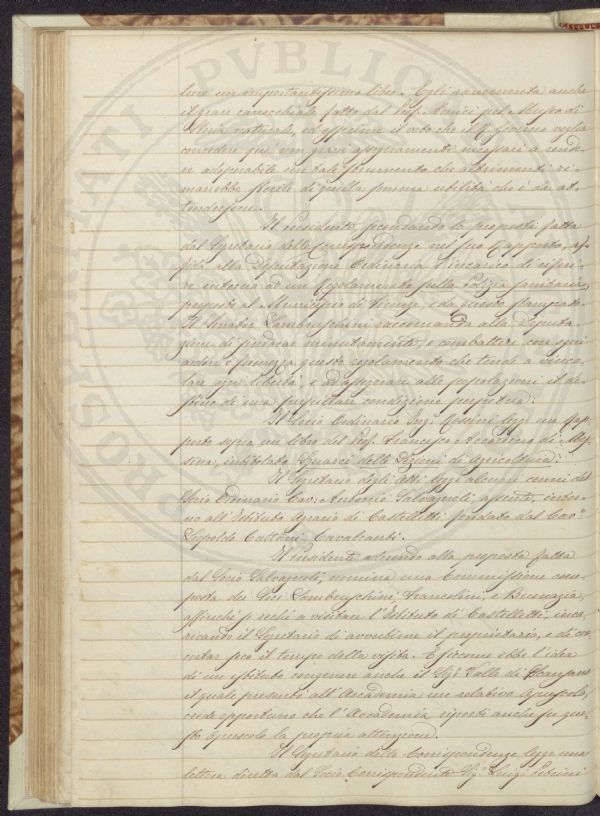 luce un importantissimo libro. Egli rammenta anche
il gran canocchiale fatto dal Prof. Amici pel Museo di
Storia naturale, ed esprime il voto che il R. Governo voglia
concedere quei non gravi assegnamenti necessari a rende
re adoprabile un tale strumento che altrimenti ri-
marrebbe sterile di quella somma utilità che è da at-
tendersene.
Il Presidente, secondando la proposta fatta
dal Segretario delle corrispondenze nel suo Rapporto, af
fida alla Deputazione Ordinaria l'incarico di riferi-
re intorno ad un Regolamento sulla Polizia sanitaria,
proposto al Municipio di Firenze, e da questo stampato.
Il Senator Lambruschini raccomanda alla Deputa
zione di sindacar minutamente, e combatter con ogni
ardore e fermezza questo regolamento che tende a vinco-
lare ogni libertà, e ad assegnare alle popolazioni il de-
stino di una pupillare condizione perpetua.
Il Socio Ordinario Ing. Rossini legge un Rap
porto sopra un libro del Prof. Francesco Accordino di Mes
sina, intitolato Squarci delle Lezioni di Agricoltura.
Il Segretario degli Atti legge alcuni cenni del
Socio Ordinario Cav. Antonio Salvagnoli, assente, intor-
no all'Istituto Agrario di Castelletti fondato dal Cav.
Leopoldo Cattani Cavalcanti.
Il Presidente aderendo alla proposta fatta
dal Socio Salvagnoli, nomina una Commissione com-
posta dei Soci Lambruschini, Franceschini, e
affinchè si rechi a visitare l'Istituto di Castelletti, inca
ricando il Segretario di avvertirne il proprietario, e di con
certar seco il tempo della visita. E siccome ebbe l'idea
di un istituto congenere anche il Sig. Valle di
il quale presentò all'Accademia un relativo opuscolo,
crede opportuno che l'Accademia riporti anche su que-
sto opuscolo la propria attenzione.
Il Segretario delle Corrispondenze legge una
lettera diretta dal Socio Corrispondente Sig. Luigi
PVBLICA PROSPERITATI